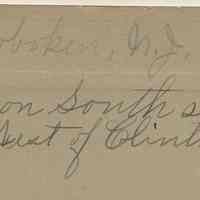 oboken, N.J.
on South s
West of Clint